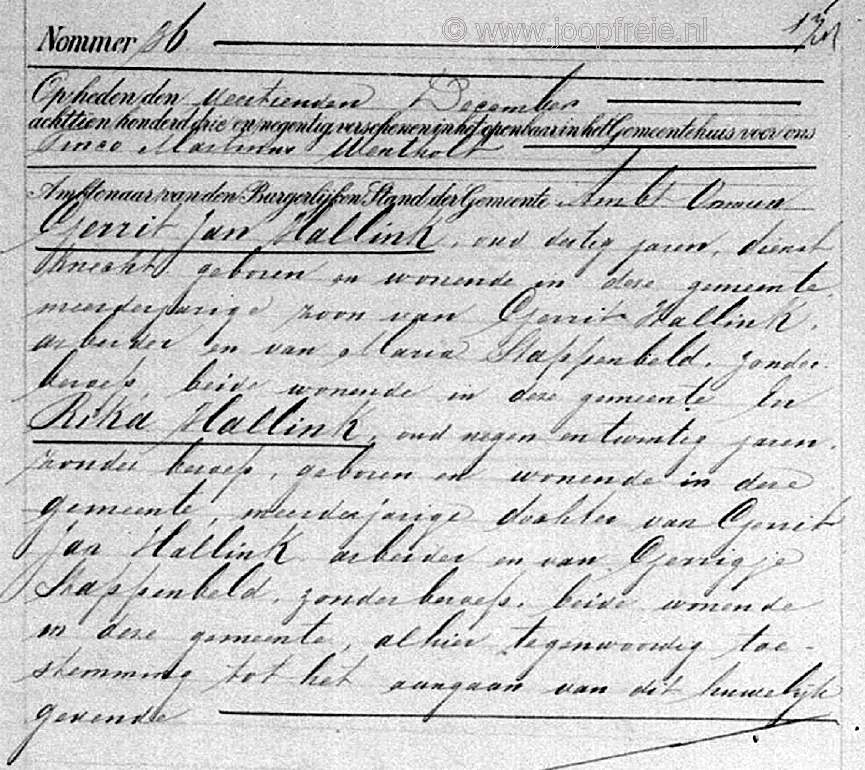 © www.joopfreie.nl
Nommer 36
Op heden den veertienden December
achttien honderd drie en negentig verschenen in het openbaar in het Gemeentehuis voor ons
Martinus Wentholt
Ambtenaar van den Burgerlijken Stand der Gemeente Ambt Ommen
Gerrit Jan Hallink, oud dertig jaren, dienst
knecht geboren en wonende in deze gemeente,
meerderjarige zoon van Gerrit Hallink,
arbeider en van Maria Stappenbeld, zonder
beroep, beide wonende in deze gemeente En
Rika Hallink, oud negen en twintig jaren,
zonder beroep, geboren en wonende in deze
gemeente, meerderjarige dochter van Gerrit
Jan Hallink, arbeider en van Gerrigje
Stappenbeld, zonder beroep, beide wonende
in deze gemeente, alhier tegenwoordig toe-
stemming tot het aangaan van dit huwelijk
gevende